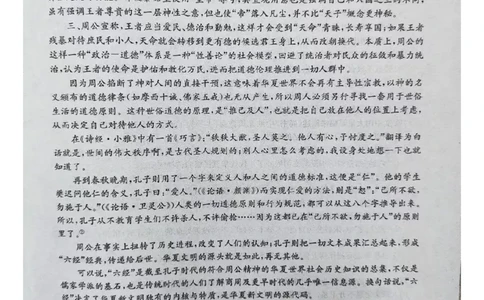 虽有强调王者尊贵的这一层神性之意,但也使“帝”落入凡尘,并不比“天子”概念更神秘。
三、周公宣称,王者应当爱民、德治和勤勉,这样才会受到“天命”青睐,长寿年国;如果王者
残暴对待庶民和小人,天命就会转移到更有德的候选君王身上,从而改朝换代。本质上,周公的
这样一种“政治—道德”体系是一种“性善论”的社会模型,回避了统治者对民众的征敛和暴力统
治,认为王者的使命是护佑和教化万民,进而把道德伦理推进到一切人群中。
因为周公掐断了神对人间的直接干预,这意味着华夏世界不会再有主导性宗教,以神的名
义颁布的道德律条(如摩西十诫、佛家五戒)也无从产生,所以周人必须另行寻找一套用于世俗
生活的道德原则。这种世俗道德的原理,是“推己及人”,也就是把自己放在他人的位置上考虑,
从而决定自己对待他人的方式。
在《诗经·小雅》中有一首《巧言》:“秩秩大猷,圣人莫之。他人有心,予忖度之。”翻译为白
话就是,世间的伟大秩序啊,是古代圣人规划的;别人心里怎么考虑的,我设身处地想一下也就
知道了。
再到春秋晚期,孔子则用了一个字来定义人和人之间的道德标准,这便是“仁”。他的学生
樊迟问他仁的含义,孔子曰:“爱人。”(《论语·颜渊》)而实现仁爱的方法,则是“恕”:“己所不欲,
勿施于人。”(《论语·卫灵公》)人类的一切道德原则和行为规范,都可以从这八个字推导出来。
所以,孔子从不教育学生们不许杀人、不许偷抢……因为这都已在“己所不欲,勿施于人”的原则
里了。②
周公在事实上扭转了历史进程,改变了人们的认知;孔子则把一切文本成果汇总起来,形成
“六经”经典,传递给后世。华夏文明的源头就是如此,再无其他。
可以说,“六经”是截至孔子时代的符合周公精神的华夏世界社会历史知识的总集,不仅是
儒家学派的基石,也是传统时代的人们了解商周及更早时代的几乎唯一信息源。换句话说,“六
经”决定了华夏新文明独有的内核与特质,是华夏新文明的源代码。